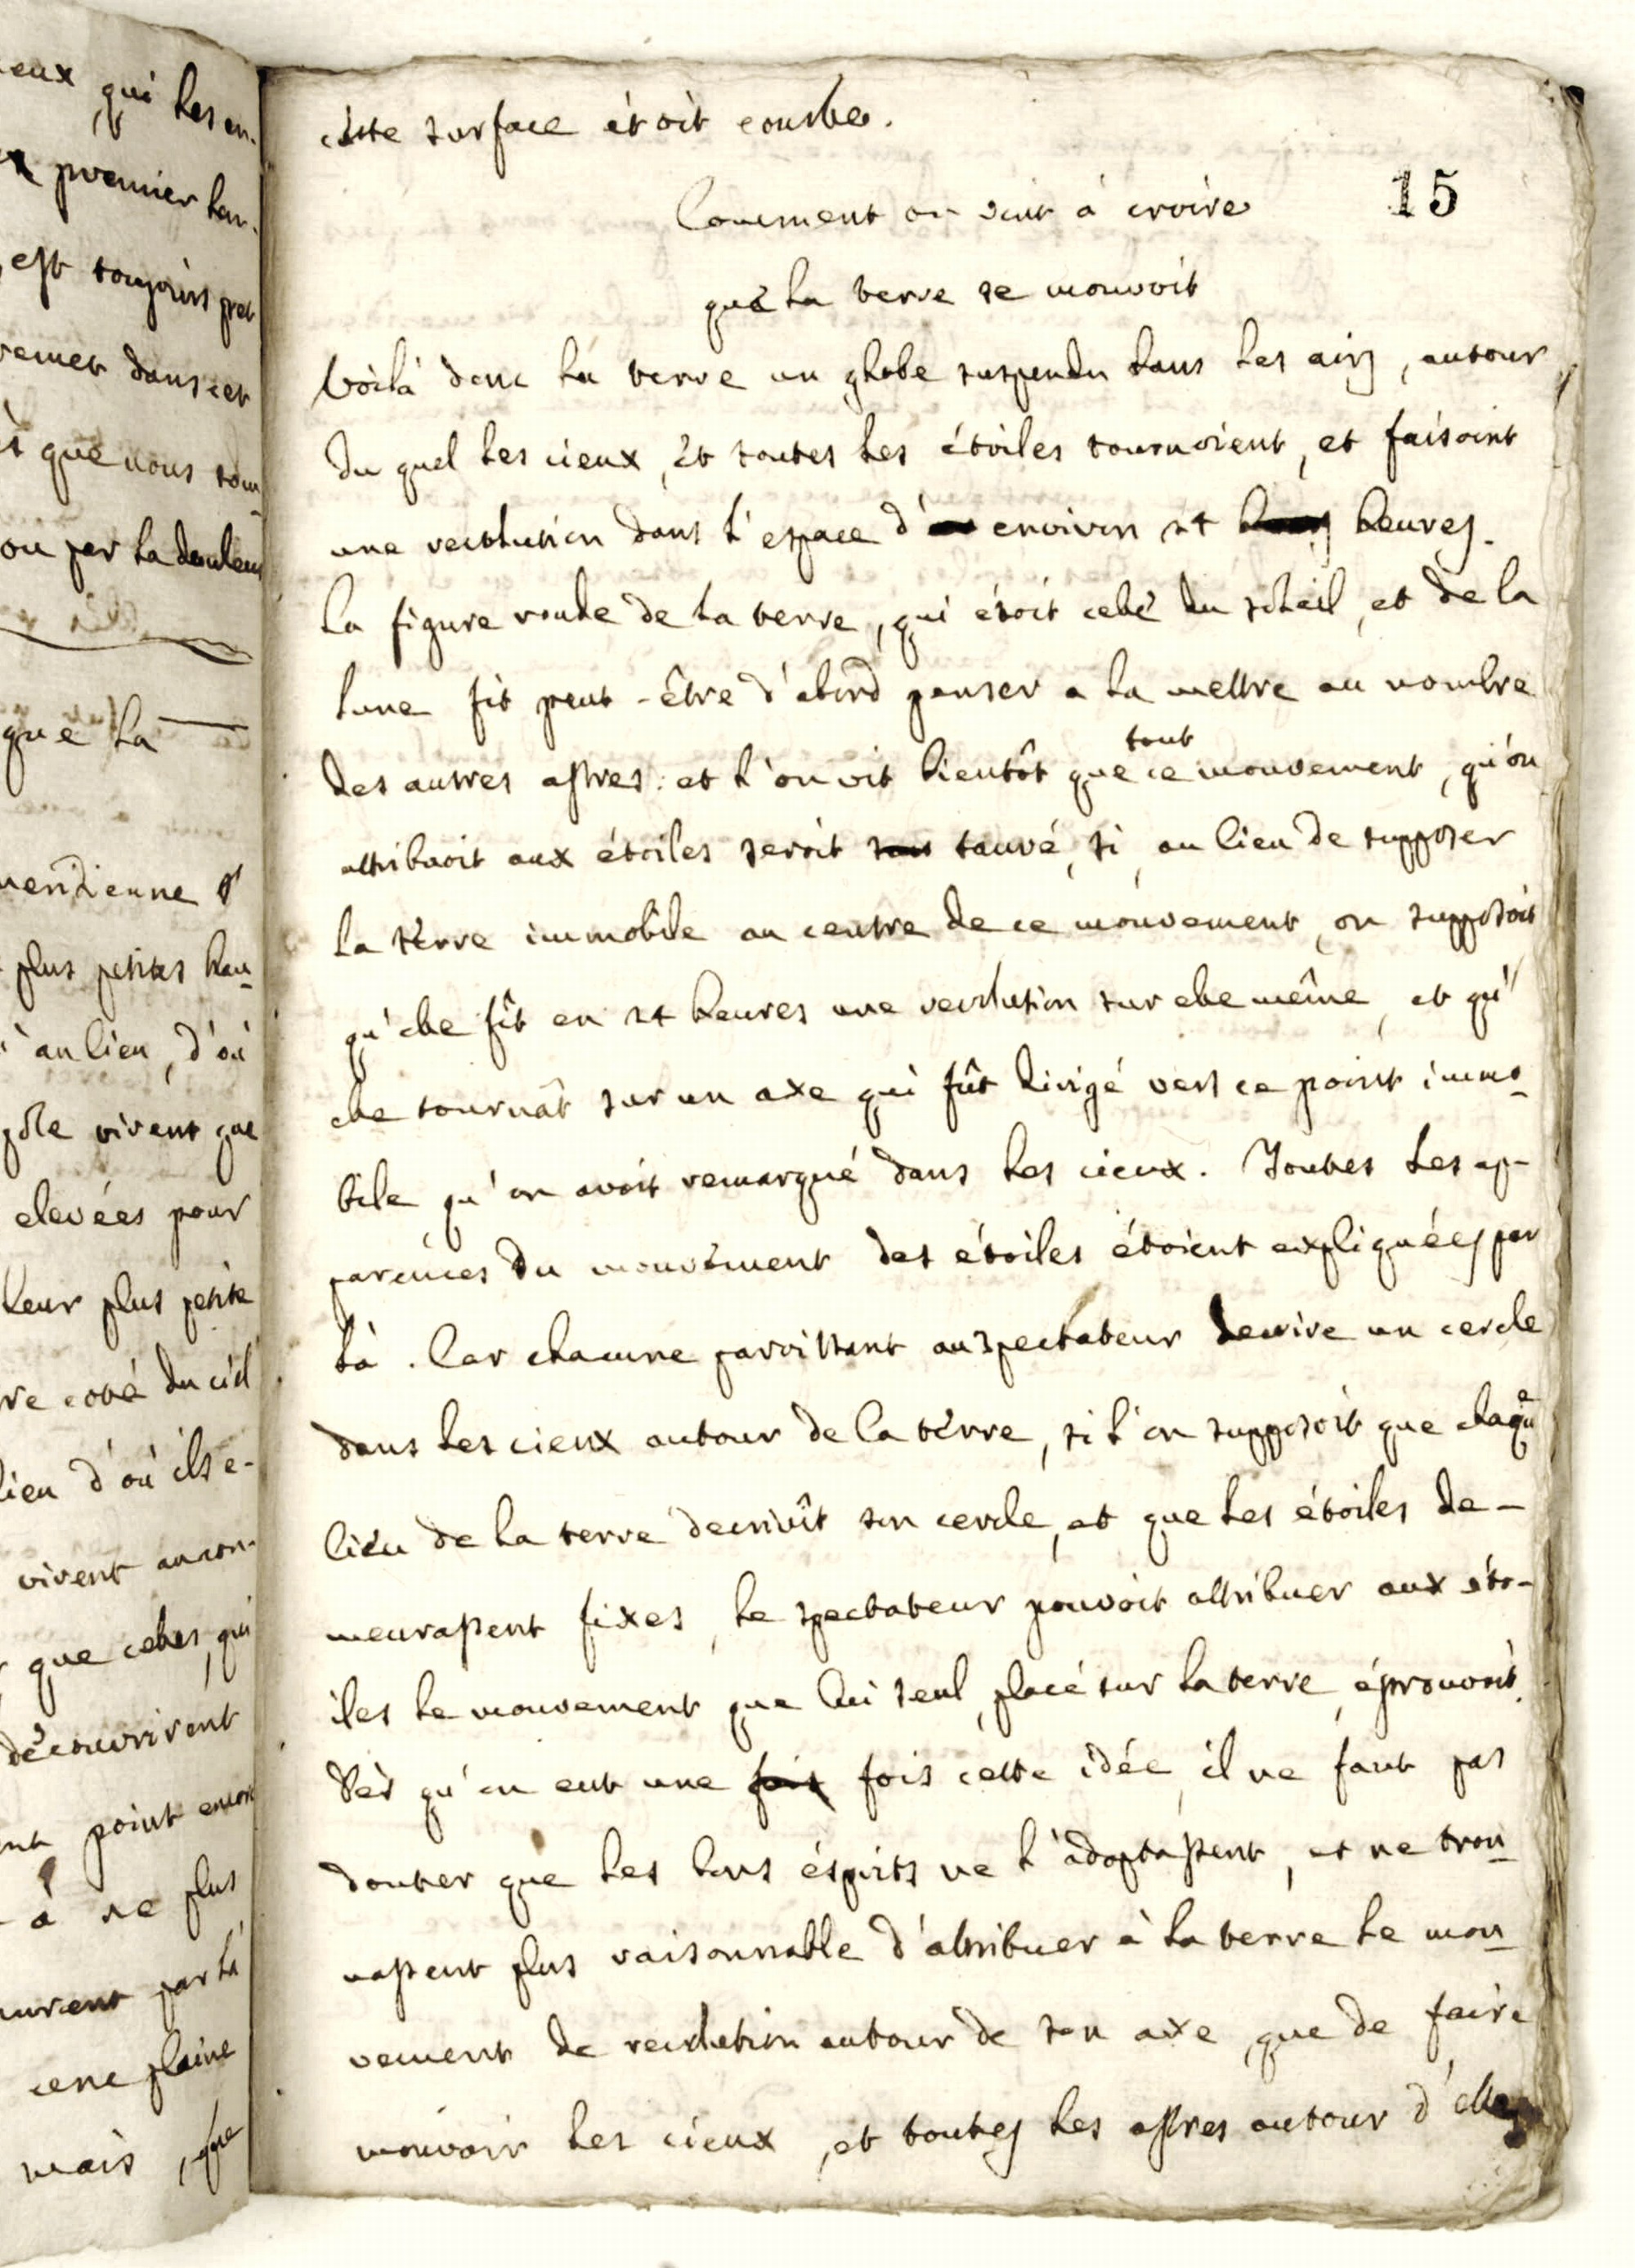 eux, qui les en-
premier
est toujours pret
dans cet
que nous som-
ou par la douleur
que la
meridienne
plus petites hau-
au lieu, d'où
pôle virent que
elevées pour
leur plus petite
coté du ciel
lieu d'où ils e-
virent
que celles, qui
découvrirent
point encore
à ne plus
par là
plaine
mais, que
cette surface étoit courbe.
15
Comment on vint à croire
que la terre se mouvoit
Voilà donc la terre un globe suspendu dans les airs, autour
du quel les cieux, et toutes les étoiles tournoient, et faisoint
une revolution dans l'espace d' environ 24 heures.
La figure ronde de la terre, qui étoit celle du soleil, et de la
lune fit peut-être d'abord penser a la mettre au nombre
des autres astres: et l'on vit bientôt que tout ce mouvement, qu'on
attribuoit aux étoiles seroit sauvé, si, au lieu de supposer
la terre immobile au centre de ce mouvement, on supposoit
qu'elle fît en 24 heures une revolution sur elle même, et qu'
elle tournât sur un axe qui fût dirigé vers ce point immo-
bile, qu'on avoit remarqué dans les cieux. Toutes les ap-
parences du mouvement des étoiles étoient expliquées par
là. Car chacune paroissant au spectateur decrire un cercle
dans les cieux autour de la terre, si l'on supposoit que chaque
lieu de la terre decrivît son cercle, et que les étoiles de-
meurassent fixes, le spectateur pouvoit attribuer aux éto-
iles le mouvement que lui seul, placé sur la terre, éprouvoit.
Dès qu'on eut une fois cette idée, il ne faut pas
douter que les bons ésprits ne l'adoptassent, et ne trou-
vassent plus raisonnable d'attribuer à la terre le mou-
vement de revolution autour de son axe, que de faire
mouvoir les cieux, et toutes les astres autour d'elle